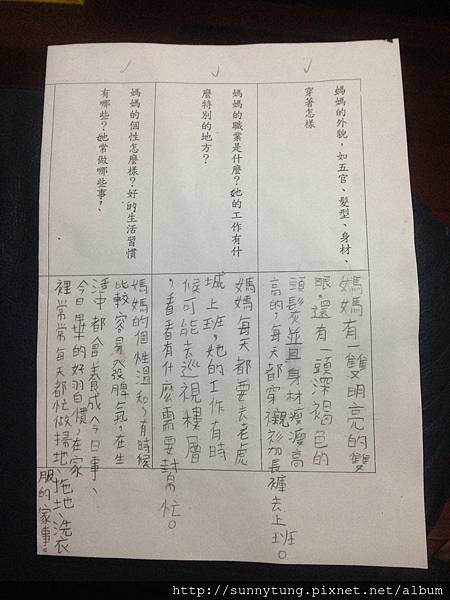 媽媽的外貌，如五官、髮型、身材、
穿著怎樣
媽媽有一雙明亮的雙
眼，還有一頭深褐色的
頭髮並且身材瘦瘦高
高的，每天都穿襯衫加長褲去上班。
媽媽的職業是什麼？她的工作有什
麼特別的地方？
媽媽每天都要去老虎
城上班，她的工作有時
候可能去巡視樓層
，看看有什麼需要幫忙。
媽媽的個性怎麼樣？好的生活習慣
有哪些？她常做哪些事，
媽媽的個性溫和，有時候
比較容易發脾氣，在生
活中都會養成今日事、
今日畢的好習慣在家
裡常常每天都忙做掃地、拖地、洗衣
服的家事。
http://sunnytung.pixnet.net/album